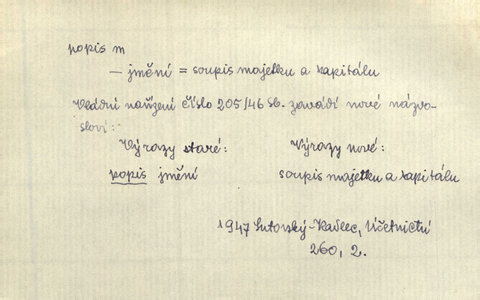 popis m
— jmění = soupis majetku a kapitálu
Vládní nařízení číslo 205/46 Sb. zavádí nové názvo-
sloví:
Výrazy staré: Výrazy nové:
popis jmění soupis majetku a kapitálu
1947 Účetnictví
260, 2.